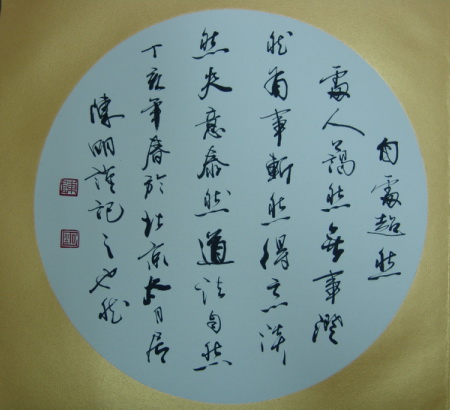 自處超然
處人藹然無事澄
然有事斬然得意淡
然失意泰然道法自然
丁亥年春於北京月居
陳明謹記之也
陳
明